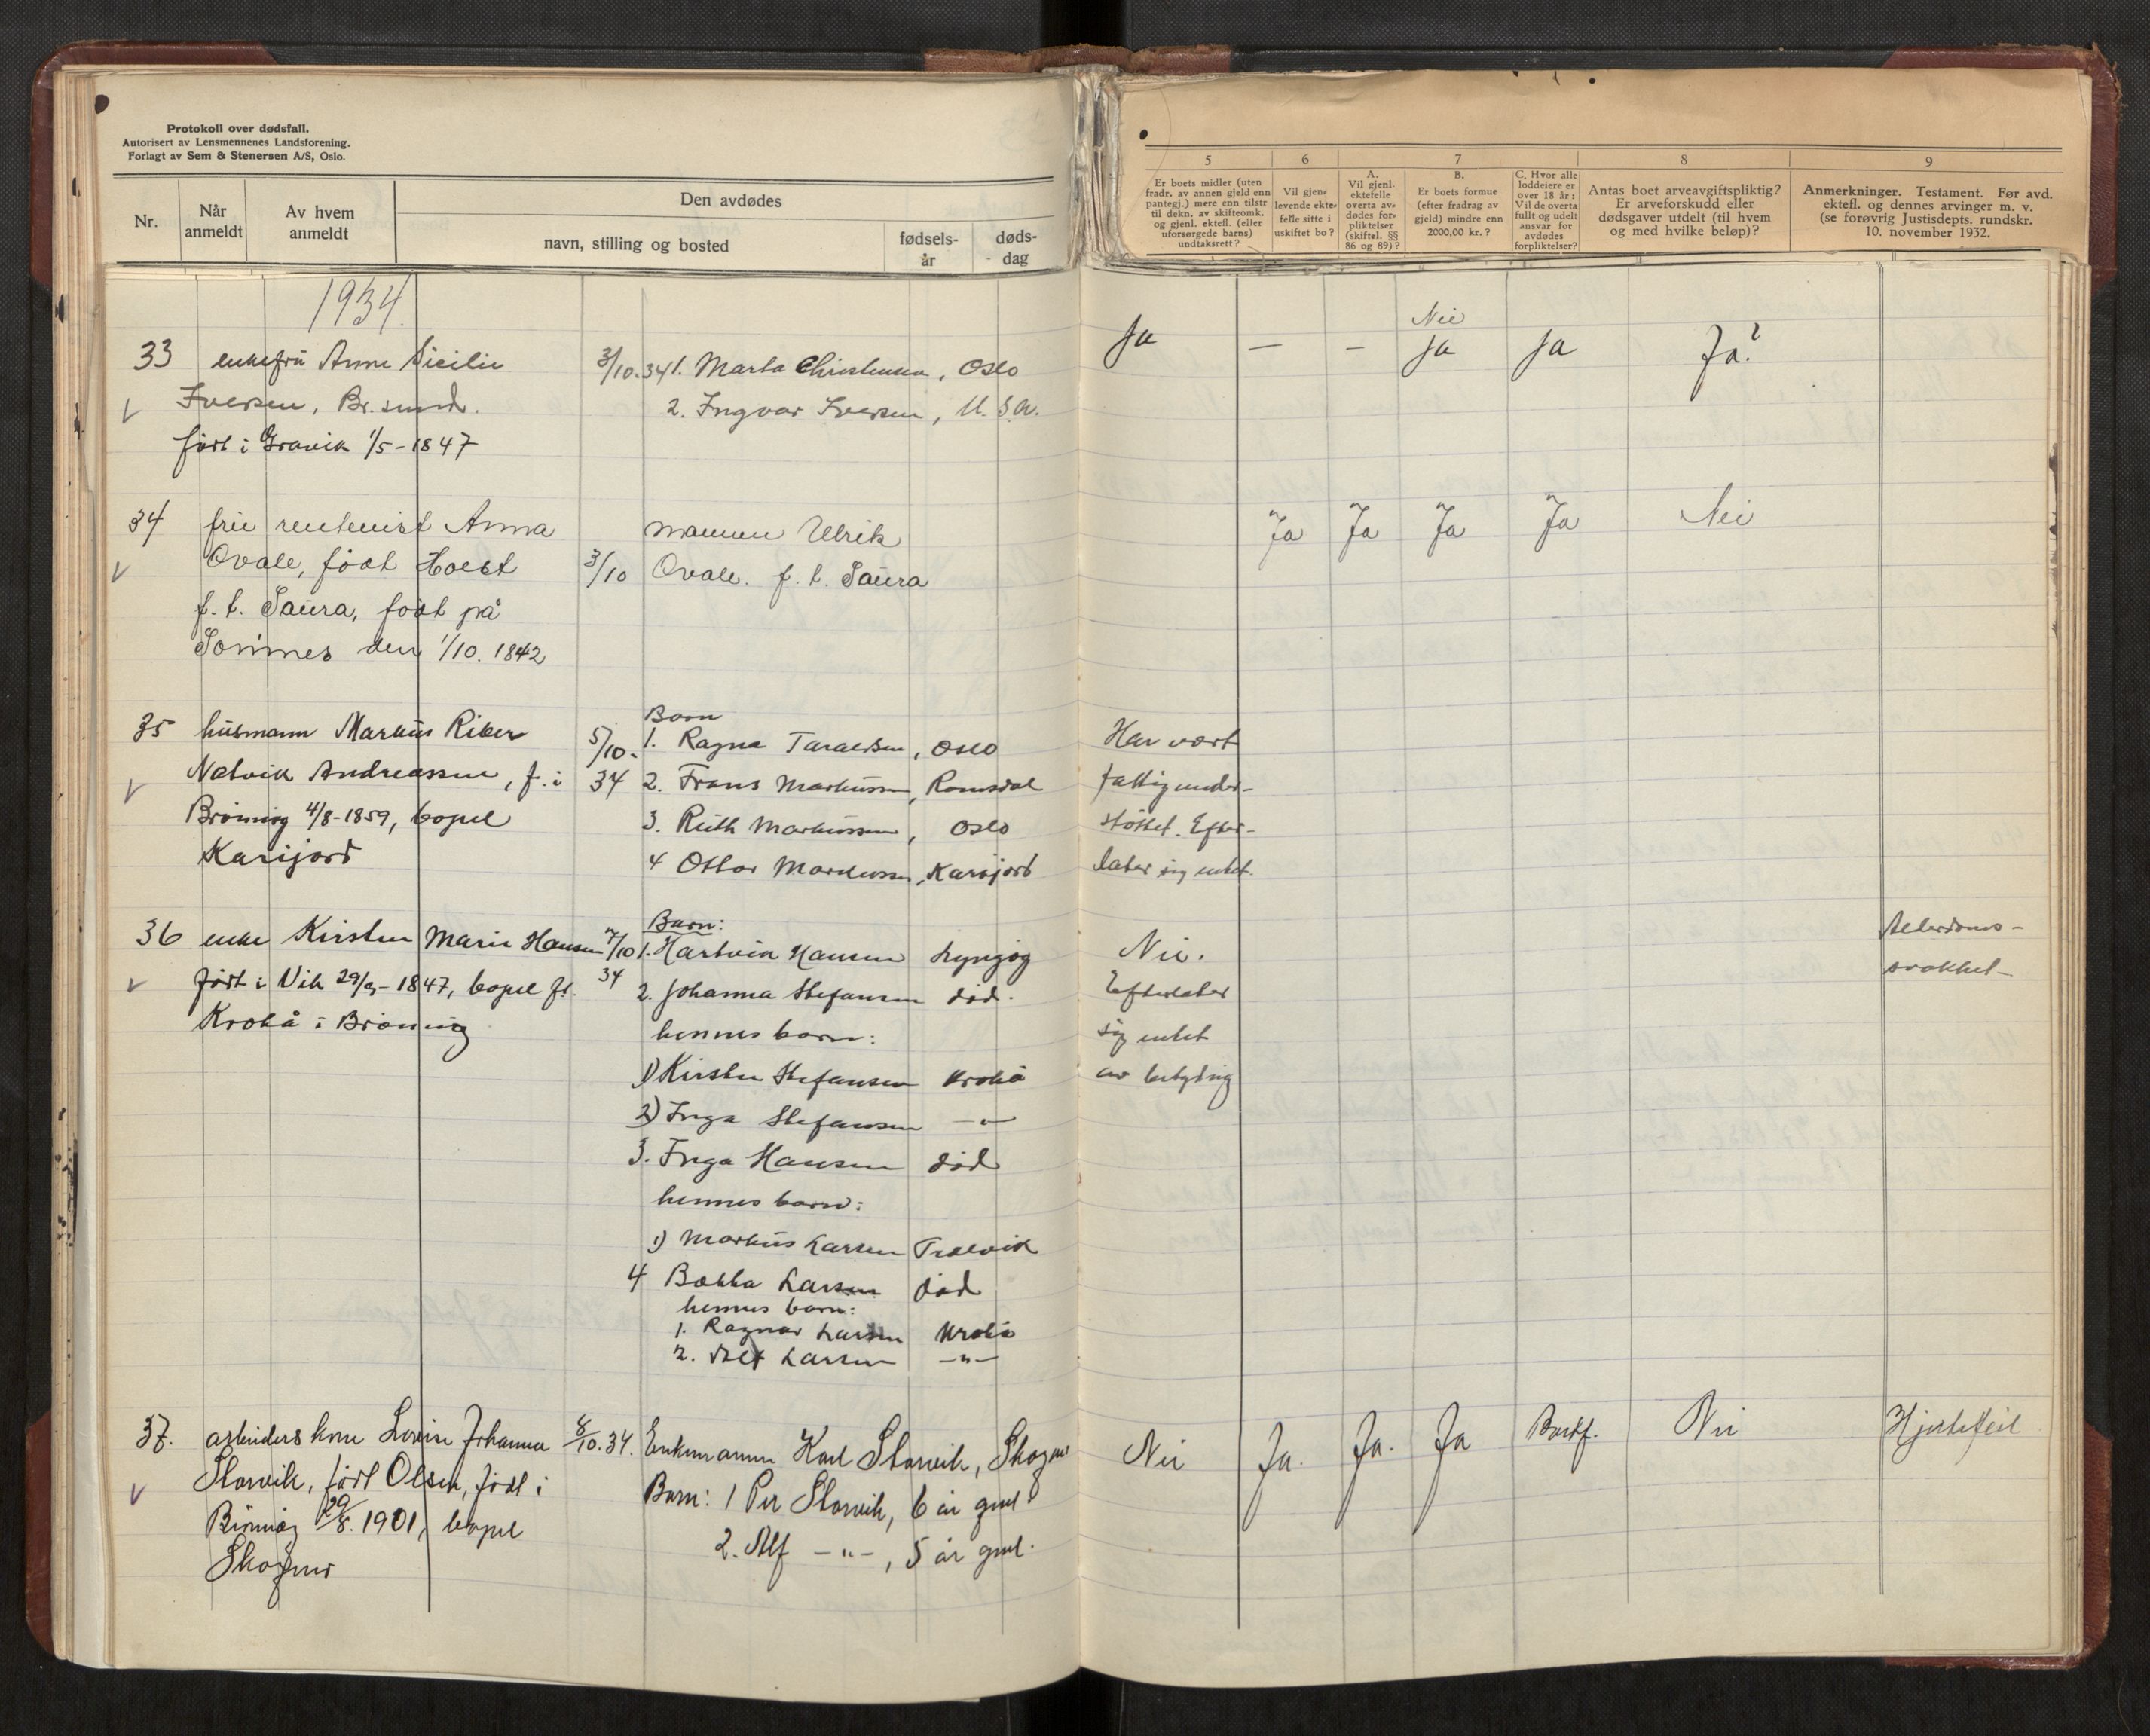 Protokoll over dødsfall.
Autorisert av Lensmennenes Landsforening.
Forlagt av Sem & Stenersen A/S, Oslo.
Nr.
Når
anmeldt
Av hvem
anmeldt
Den avdødes
navn, stilling og bosted
fødsels-
år
døds-
dag
5
Er boets midler (uten
fradr. av annen gjeld enn
pantegj.) mere enn tilstr
til dekn. av skifteomk.
og gjenl. ektefl. (eller
uforsørgede barns)
undtaksrett?
6
Vil gjen-
levende ekte-
felle sitte i
uskiftet bo?
7
A.
Vil gjenl.
ektefelle
overta av-
dødes for-
pliktelser
(skiftel. §§
86 og 89)?
B.
Er boets formue
(efter fradrag av
gjeld) mindre enn
2000,00 kr.?
C. Hvor alle
loddeiere er
over 18 år:
Vil de overta
fullt og udelt
ansvar for
avdødes
forpliktelser?
8
Antas boet arveavgiftspliktig?
Er arveforskudd eller
dødsgaver utdelt (til hvem
og med hvilke beløp)?
9
Anmerkninger. Testament. Før avd.
ektefl. og dennes arvinger m. v.
(se forøvrig Justisdepts. rundskr.
10. november 1932.
1934.
33 enkefru Anne Sicilie
Iversen, Br.sund.
født i Gravik 1/5-1847
3/10.34 1. Marta Christensen, Oslo
2. Ingvar Iversen, U.S.A.
Ja — — Nei
Ja Ja Ja?
34 fru rentenist Anna
Ovale, født Hoest
f. t. Saura, født på
Sømnes den 1/10. 1842
3/10
mannen Ulrik
Ovale. f. t. Saura
Ja Ja Ja Ja Nei
35 husmann Markus Riber
Natvik Andreassen, f. i
Brønnøy 4/8-1859, bopel
Karijord
5/10.
34
Barn
1. Ragna Taraldsen, Oslo
2. Frans Markussen, Romsdal
3. Ruth Markussen, Oslo
4 Ottar Markussen, Karijord
Har vært
fattigunder-
støttet. Efter-
later sig intet.
36 enke Kirsten Marie Hansen
født i Vik 29/9-1847, bopel ft.
Krokå i Brønnøy
7/10
34
Barn:
1. Hartvik Hansen Lyngøy
2. Johanna Stefansen død.
hennes barn:
1) Kirsten Stefansen Krokå
2) Inga Stefansen —"—
3. Inga Hansen død
hennes barn:
1) Markus Larsen Trælvik
4 Bækka Larsen død
hennes barn:
1. Ragnar Larsen Krokå
2. Alf Larsen —"—
Nei.
Efterlater
sig intet
av betydnig
Alderdoms-
svakhet-
37. arbeiders kone Lovise Johanna
Storvik, født Olsen, født i
Brønnøy 29/8. 1901, bopel
Skogmo
8/10.34.
Enkemann Karl Storvik, Skogmo
Barn: 1 Per Storvik, 6 år gml.
2. Alf —"—, 5 år gml.
Nei Ja. Ja. Ja Bortf. Nei Hjertefeil